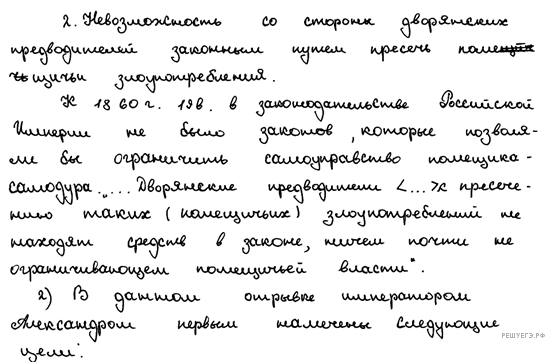 2. Невозможность со стороны дворянских
предводителей законным путем пресечь помещи
чь щичьи злоупотребления.
К 1860 г. 19в. в законодательстве Российской
Империи не было законов, которые позволя-
ли бы ограничить самоуправство помещика-
самодура. „... Дворянские предводители <...> к пресече-
нию таких (помещичьих) злоупотреблений не
находят средств в законе, ничем почти не
ограничивающем помещичьей власти".
2) В данном отрывке императором
Александром первым намечены следующие
цели:
РЕШУЕГЭ.РФ